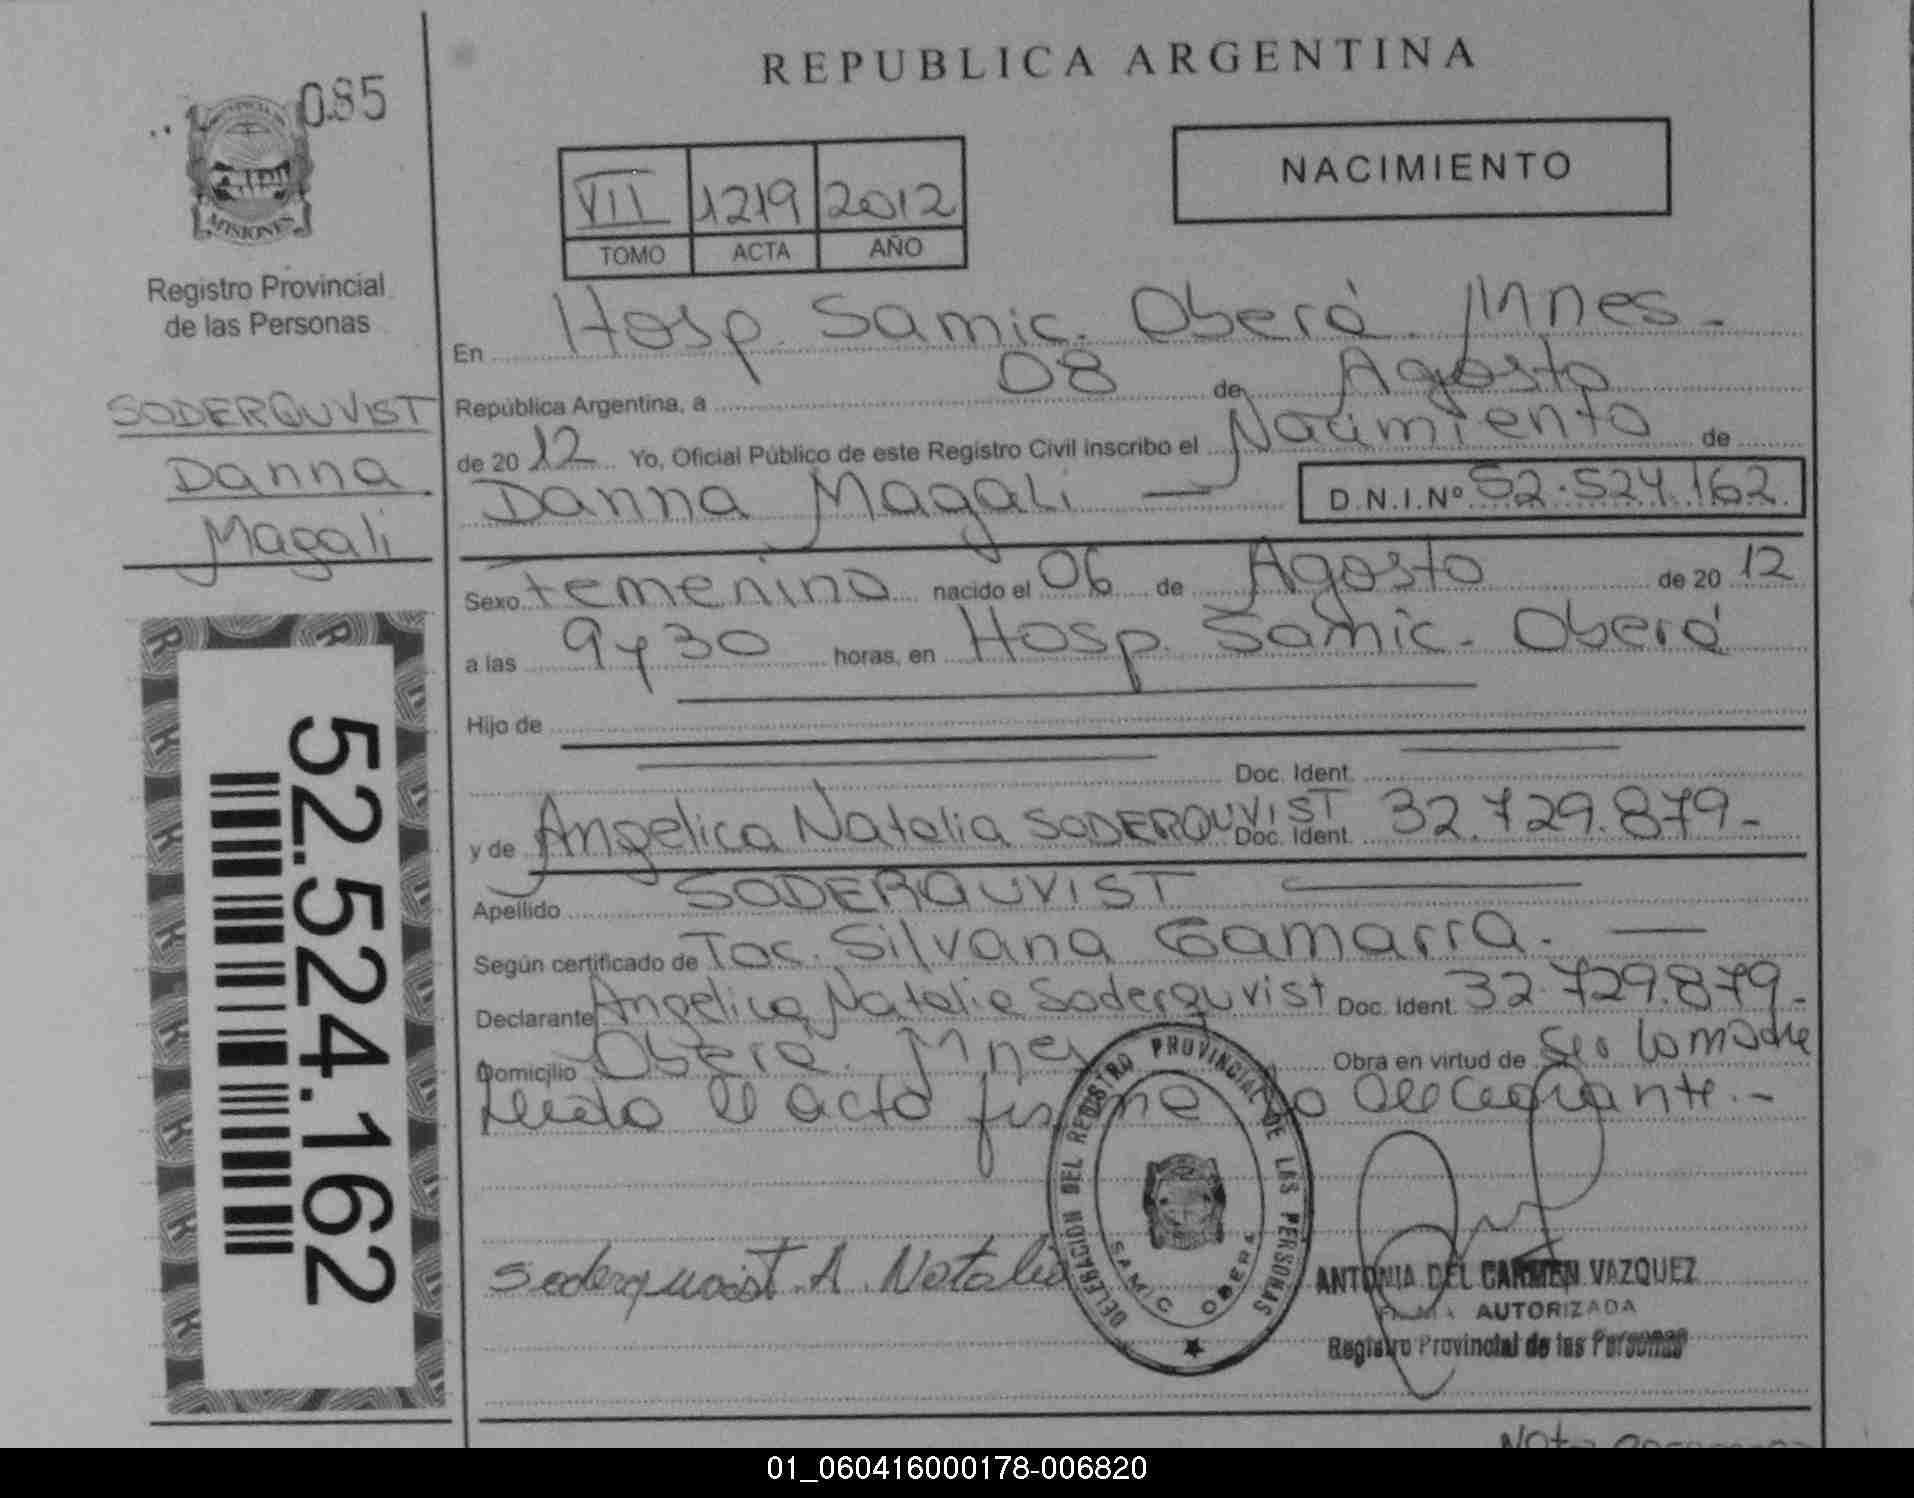 085
PROVINCIA DE
MISIONES
Registro Provincial
de las Personas
SODERQUVIST
Danna
Magali
52.524.162
REPUBLICA ARGENTINA
NACIMIENTO
VII 1219 2012
TOMO ACTA AÑO
En Hosp. Samic. Oberá. Mnes.-
República Argentina, a 08 de Agosto
de 2012 Yo, Oficial Público de este Registro Civil inscribo el Nacimiento de
Danna Magali — D.N.I.Nº 52.524.162
Sexo femenino nacido el 06 de Agosto de 2012
a las 9 y 30 horas, en Hosp. Samic. Oberá
Hijo de
Doc. Ident.
y de Angelica Natalia SODERQUVIST Doc. Ident. 32.729.879-
Apellido SODERQUVIST
Según certificado de Toc. Silvana Gamarra. —
Declarante Angelica Natalia Soderquvist Doc. Ident. 32.729.879.-
Domicilio Oberá. Mnes Obra en virtud de Ser la madre
Leida el acta firma la declarante.-
DELEGACION DEL REGISTRO PROVINCIAL DE LAS PERSONAS
SAMIC OBERA
Soderquvist A. Natalia
ANTONIA DEL CARMEN VAZQUEZ
FIRMA AUTORIZADA
Registro Provincial de las Personas
Nota
01_060416000178-006820